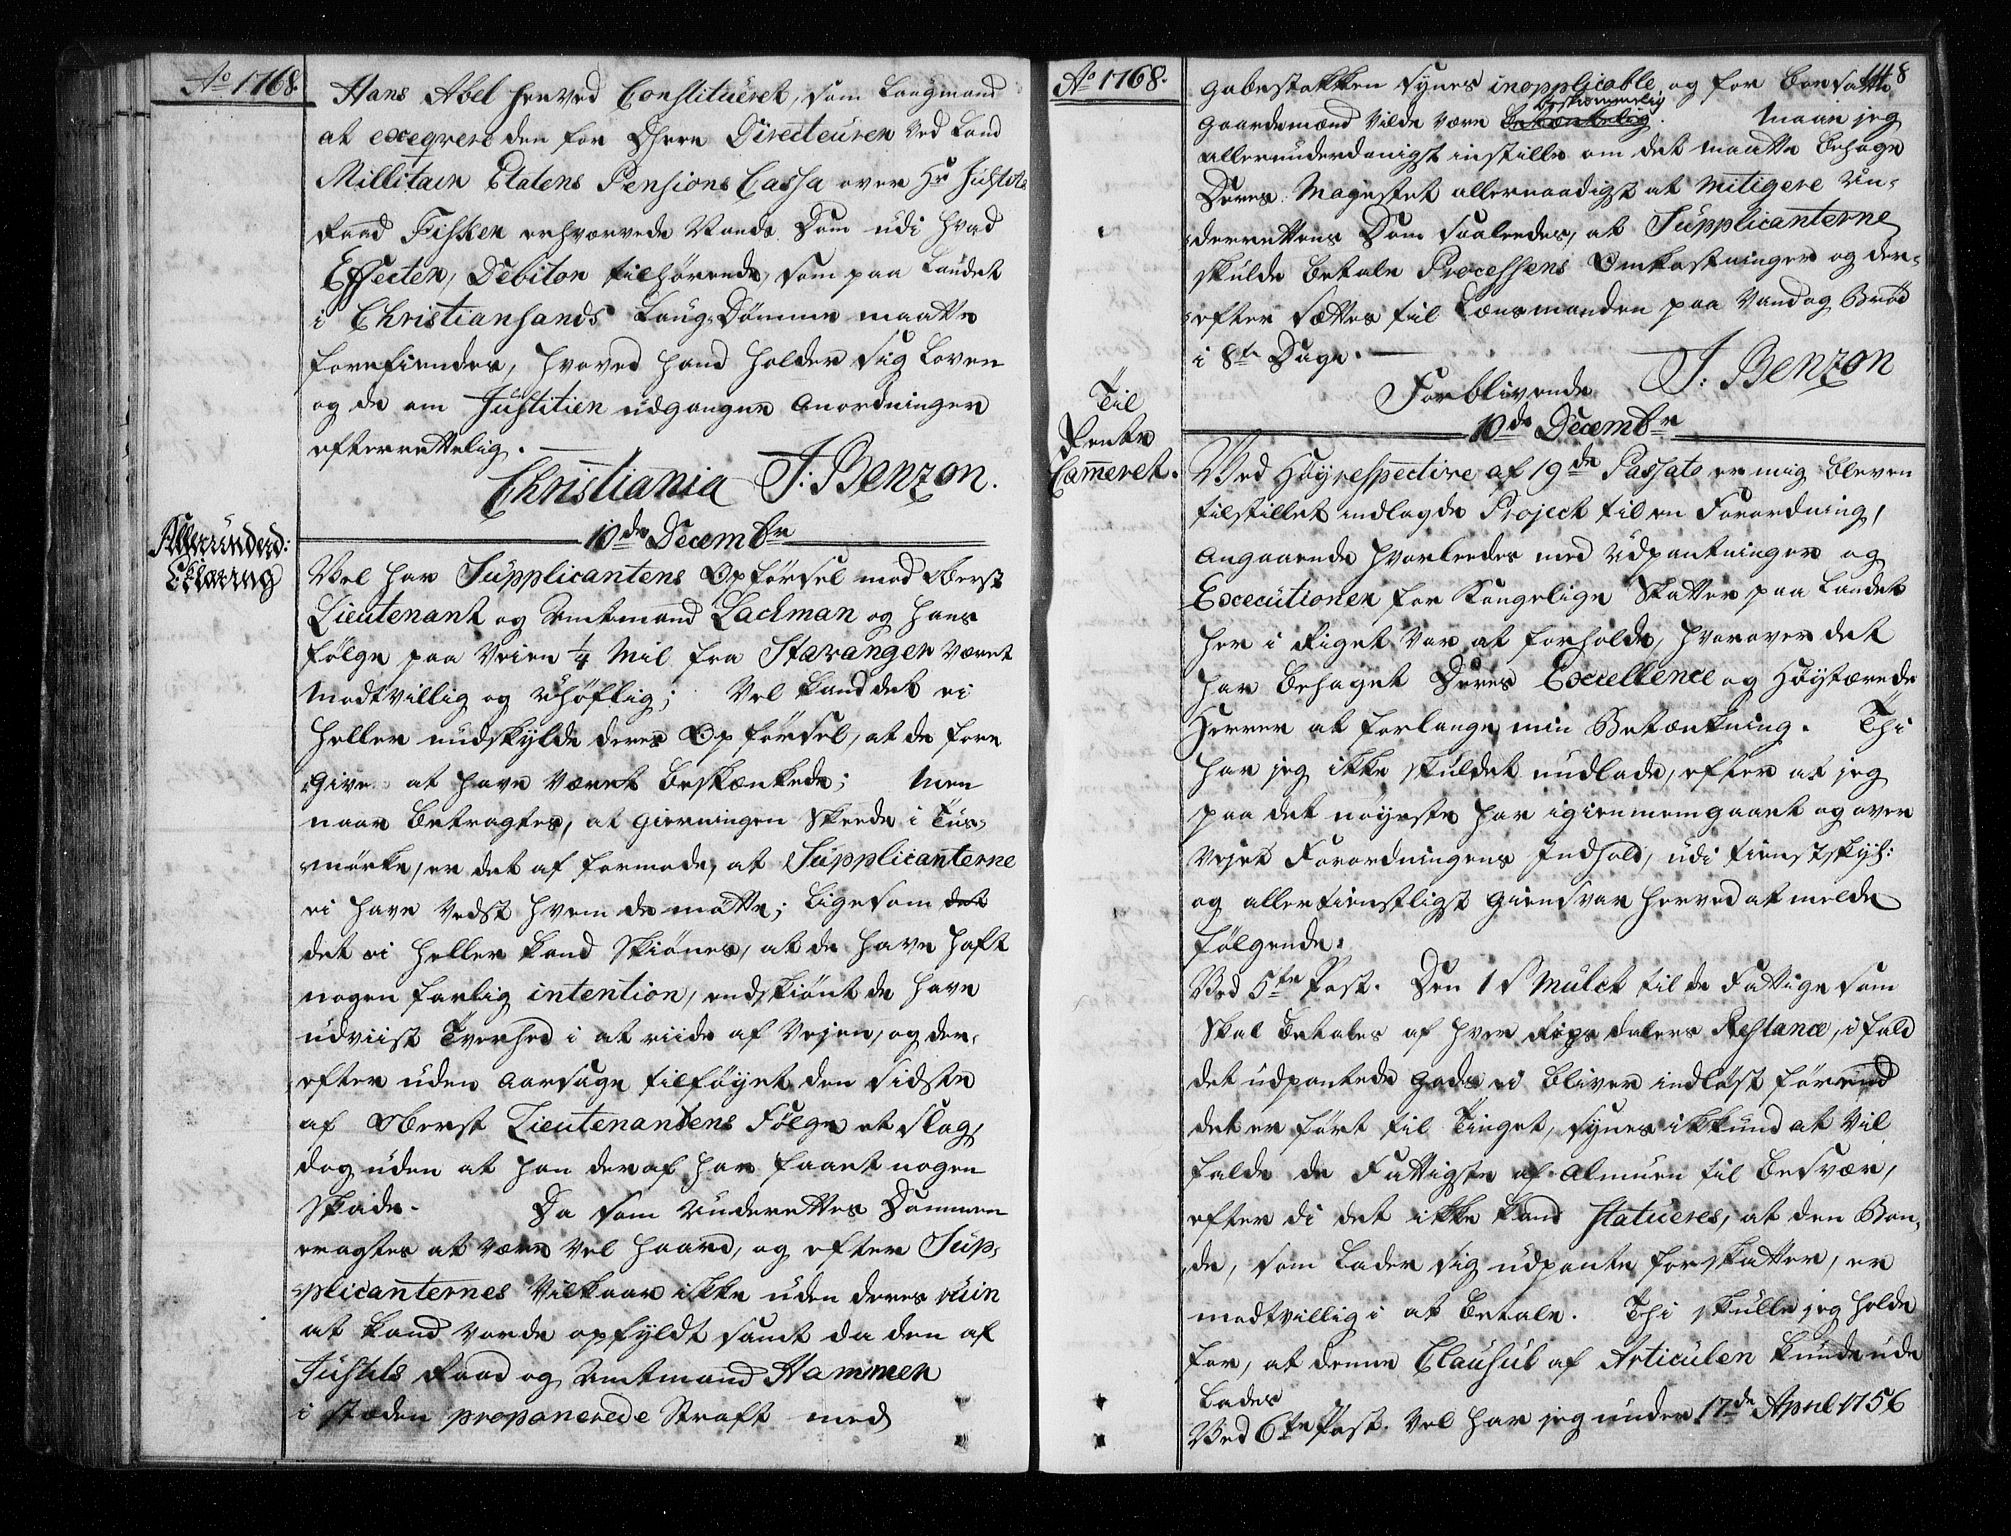 Ao 1768.
Hans Abel herved Constitueret, som Laugmand
at exeqvere den for Herr Directeuren ved Land
Millitair Etatens Pensions Casse over Hr Justits
Raad Fisker erhværvede Raads Dom udi hvad
Effecter, Debitor tilhørende, som paa Landet
i Christiansands Laug-Dømme maatte
forefindes, hvorved hand holder sig Loven
og de om Justitien udgangne Anordninger
efterrettelig.
Christiania J: Benzon.
10de Decembr
Allerunderd:
Eklæring
Vel har Supplicantens Opførsel mod Oberst
Lieutenant og Amtmand Lachman og hans
følge paa Veien 1/4 Mil fra Stavanger været
modtvillig og uhøflig; Vel kand det ei
heller undskylde deres Opførsel, at de fore
give at have været beskænkede; Men
naar betragtes, at Gierningen skeede i Tus-
mørke, er det at formode, at Supplicanterne
ei have vedst hvem de møtte; Ligesom det
det ei heller kand skiønes, at de have haft
nogen farlig intention, endskiønt de have
udviist Tverhed i at riide af Vejen, og der-
efter uden Aarsage tilføyet den sidste
af Oberst Lieutenantens Følge et slag,
dog uden at han deraf har faaet nogen
skade. Da som Underrettes Dommen
eragtes at være vel haard, og efter Sup-
plicanternes Vilkaar ikke uden deres ruin
at kand vorde opfyldt samt da den af
Justits Raad og Amtmand Hammer
i stæden proponerede Straf med
Ao 1768.
1118
Gabestokken synes inopplicable, og for bosatte
bestemmelig
Gaardemænd vilde være betænkelig. Maae jeg
allerunderdanigst indstille om det maatte behage
Deres Mayestet allernaadigst at mitigere Un-
derrettens Dom saaleedes, at Supplicanterne
skulde betale Processens Omkostninger og der-
efter sættes til Lensmanden paa Vand og Brød
i 8te Dage.
Forblivende J: Benzon
10de Decembr
Til
Rente
Cammeret.
Ved Høyrespective af 19de Passato er mig bleven
tilstillet indlagde Project til en Forordning,
angaaende hvorleedes med Udpantninger og
Executioner for Kongelige Skatter paa Landet
her i Riget var at forholde, hvorover det
har behaget Deres Excellence og Høystærede
Herrer at forlange min Betænkning. Thi
har jeg ikke skuldet undlade, efter at jeg
paa det nøyeste har igiennemgaaet og over
vejet Forordningens Indhold, udi tienstskyl:
og allertienstligst Giensvar herved at melde
følgende:
Ved 5te Post. Den 1 s Mulct til de Fattige som
skal betales af hver Rigsdalers Restance, i fald
det udpantede Gods ei bliver indløst førend
det er ført til Tinget, synes ikkund at vil
falde de Fattigste af Almuen til besvær,
efter di det ikke kand statueres, at den Bon-
de, som lader sig udpante for skatter, er
modtvillig i at betale. Thi skulle jeg holde
for, at denne Clausul af Articulen kunde ude
lades
Ved 6te Post. Vel har jeg under 17de April 1756